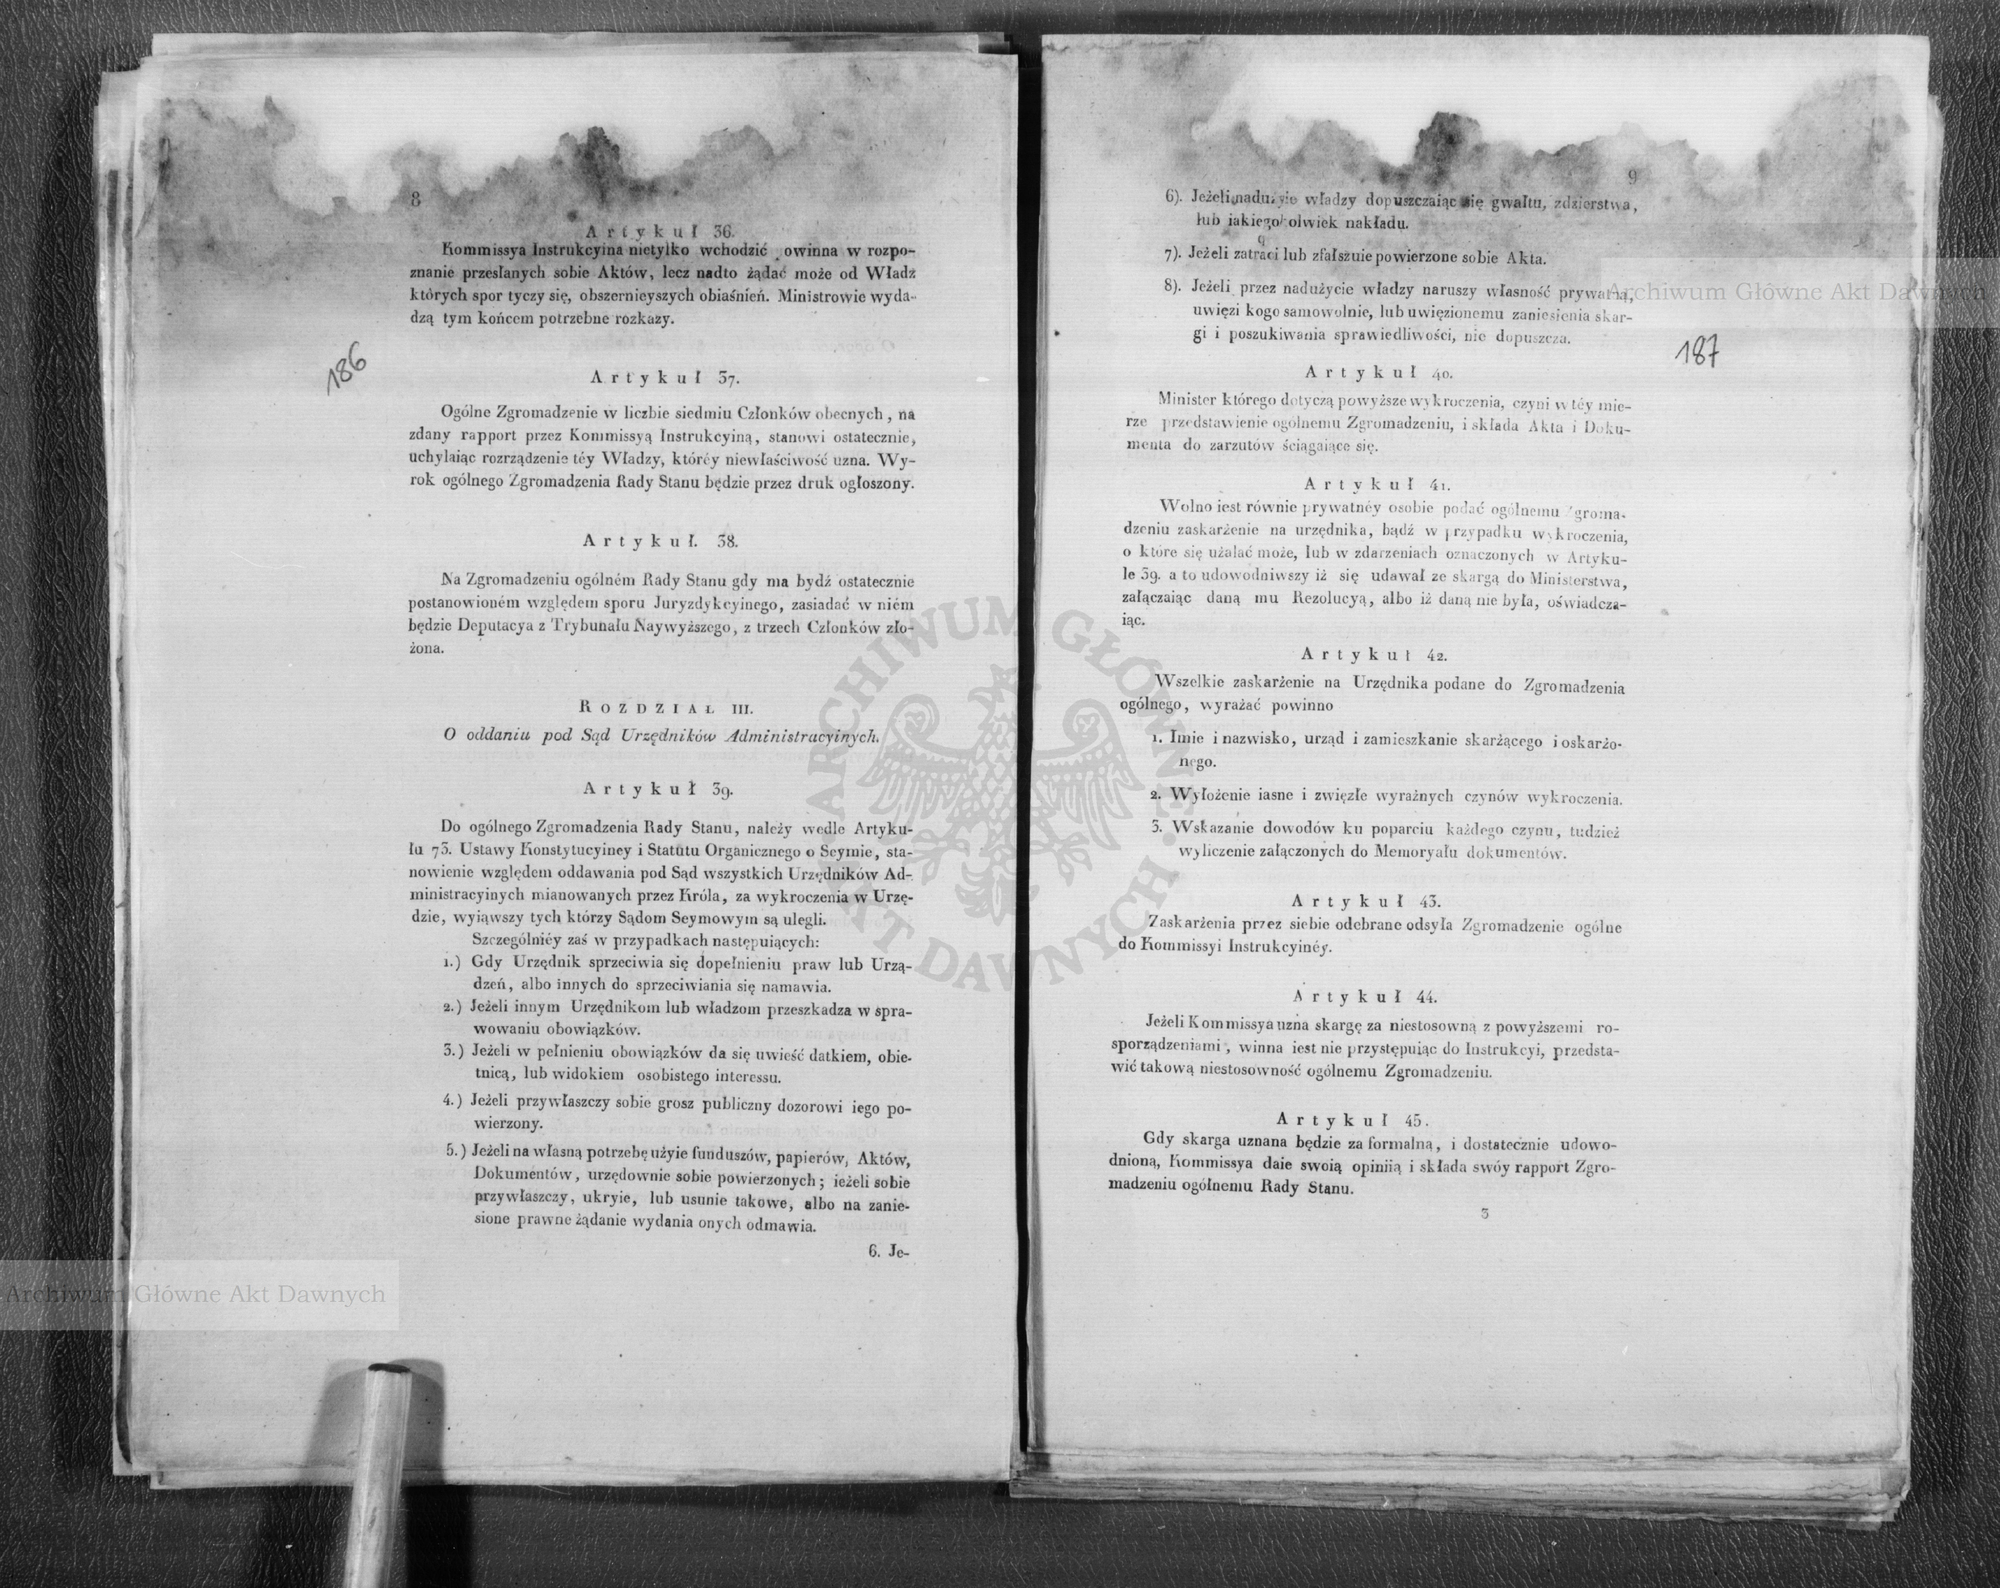 8
Artykuł 36.
Kommissya Instrukcyina nietylko wchodzić owinna w rozpo-
znanie przesłanych sobie Aktów, lecz nadto żądać może od Władz
których spor tyczy się, obszernieyszych obiaśnień. Ministrowie wyda-
dzą tym końcem potrzebne rozkazy.
186
Artykuł 37.
Ogólne Zgromadzenie w liczbie siedmiu Członków obecnych, na
zdany rapport przez Kommissyą Instrukcyiną, stanowi ostatecznie,
uchylaiąc rozrządzenie téy Władzy, któréy niewłaściwość uzna. Wy-
rok ogólnego Zgromadzenia Rady Stanu będzie przez druk ogłoszony.
Artykuł. 38.
Na Zgromadzeniu ogólném Rady Stanu gdy ma bydź ostatecznie
postanowioném względem sporu Juryzdykcyinego, zasiadać w niém
będzie Deputacya z Trybunału Naywyższego, z trzech Członków zło-
żona.
ROZDZIAŁ III.
O oddaniu pod Sąd Urzędników Administracyinych.
Artykuł 39.
Do ogólnego Zgromadzenia Rady Stanu, należy wedle Artyku-
łu 73. Ustawy Konstytucyiney i Statutu Organicznego o Seymie, sta-
nowienie względem oddawania pod Sąd wszystkich Urzędników Ad-
ministracyinych mianowanych przez Króla, za wykroczenia w Urzę-
dzie, wyiąwszy tych którzy Sądom Seymowym są ulegli.
Szczególniéy zaś w przypadkach następuiących:
1.) Gdy Urzędnik sprzeciwia się dopełnieniu praw lub Urzą-
dzeń, albo innych do sprzeciwiania się namawia.
2.) Jeżeli innym Urzędnikom lub władzom przeszkadza w spra-
wowaniu obowiązków.
3.) Jeżeli w pełnieniu obowiązków da się uwieść datkiem, obie-
tnicą, lub widokiem osobistego interessu.
4.) Jeżeli przywłaszczy sobie grosz publiczny dozorowi iego po-
wierzony.
5.) Jeżeli na własną potrzebę użyie funduszów, papierów, Aktów,
Dokumentów, urzędownie sobie powierzonych; ieżeli sobie
przywłaszczy, ukryie, lub usunie takowe, albo na zanie-
sione prawne żądanie wydania onych odmawia.
6. Je-
9
6). Jeżeli nadużyie władzy dopuszczaiąc się gwałtu, zdzierstwa,
lub iakiego olwiek nakładu.
7). Jeżeli zatraci lub zfałszuie powierzone sobie Akta.
8). Jeżeli przez nadużycie władzy naruszy własność prywatną,
uwięzi kogo samowolnie, lub uwięzionemu zaniesienia skar-
gi i poszukiwania sprawiedliwości, nie dopuszcza.
187
Artykuł 40.
Minister którego dotyczą powyższe wykroczenia, czyni w téy mie-
rze przedstawienie ogólnemu Zgromadzeniu, i składa Akta i Doku-
menta do zarzutów ściągaiące się.
Artykuł 41.
Wolno iest równie prywatnéy osobie podać ogólnemu Zgroma-
dzeniu zaskarżenie na urzędnika, bądź w przypadku wykroczenia,
o które się użalać może, lub w zdarzeniach oznaczonych w Artyku-
le 39. a to udowodniwszy iż się udawał ze skargą do Ministerstwa,
załączaiąc daną mu Rezolucyą, albo iż daną nie była, oświadcza-
iąc.
Artykuł 42.
Wszelkie zaskarżenie na Urzędnika podane do Zgromadzenia
ogólnego, wyrażać powinno
1. Imie i nazwisko, urząd i zamieszkanie skarżącego i oskarżo-
nego.
2. Wyłożenie iasne i zwięzłe wyraźnych czynów wykroczenia.
3. Wskazanie dowodów ku poparciu każdego czynu, tudzież
wyliczenie załączonych do Memoryału dokumentów.
Artykuł 43.
Zaskarżenia przez siebie odebrane odsyła Zgromadzenie ogólne
do Kommissyi Instrukcyinéy.
Artykuł 44.
Jeżeli Kommissya uzna skargę za niestosowną z powyższemi ro-
sporządzeniami, winna iest nie przystępuiąc do Instrukcyi, przedsta-
wić takową niestosowność ogólnemu Zgromadzeniu.
Artykuł 45.
Gdy skarga uznana będzie za formalną, i dostatecznie udowo-
dnioną, Kommissya daie swoią opiniią i składa swóy rapport Zgro-
madzeniu ogólnemu Rady Stanu.
3
Archiwum Główne Akt Dawnych
Archiwum Główne Akt Dawnych
ARCHIWUM GŁÓWNE AKT DAWNYCH